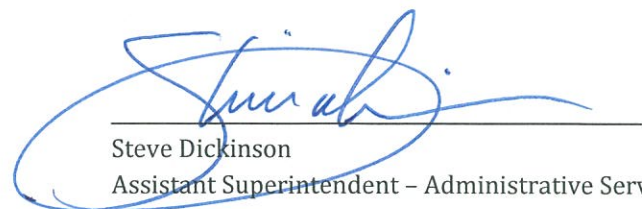 Steve Dickinson
Assistant Superintendent – Administrative Serv